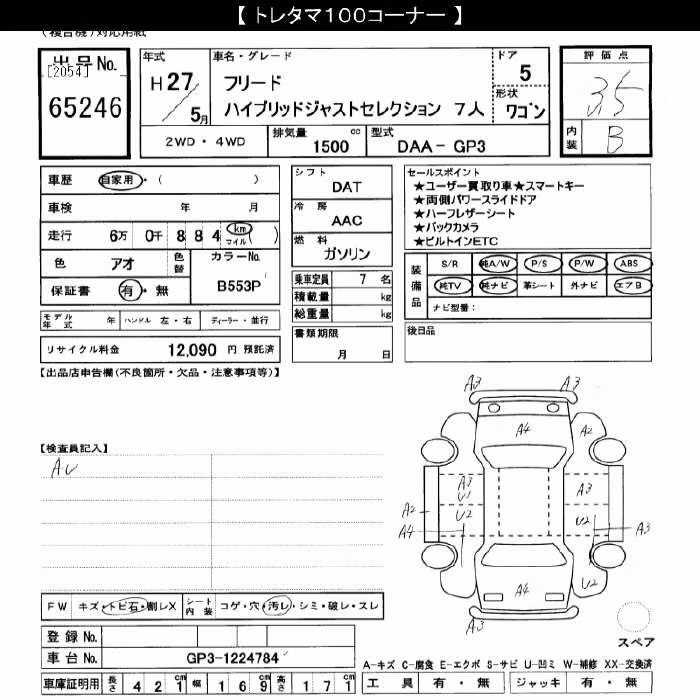 【 トレタマ100コーナー 】
(複合機)対応用紙
出品No.
[2054]
65246
年式
H27/5月
車名・グレード
フリード
ハイブリッドジャストセレクション 7人
ドア
5
形状
ワゴン
評価点
3.5
内装
B
2WD・4WD
排気量
1500 cc
型式
DAA- GP3
車歴 自家用・( )
車検 年 月
走行 6万 0千 8 8 4 ( km マイル )
色 アオ
色替
カラーNo.
B553P
保証書 有・無
モデル年式 年 ハンドル 左・右 ディーラー・並行
リサイクル料金 12,090 円 預託済
シフト
DAT
冷房
AAC
燃料
ガソリン
乗車定員 7 名
積載量 kg
総重量 kg
書類期限
月 日
セールスポイント
★ユーザー買取り車★スマートキー
★両側パワースライドドア
★ハーフレザーシート
★バックカメラ
★ビルトインETC
装備品
S/R 純A/W P/S P/W ABS
純TV 純ナビ 革シート 外ナビ エアB
ナビ型番:
後日品
【出品店申告欄(不良箇所・欠品・注意事項等)】
【検査員記入】
A3 A3
A4 A2
A3 U1 A3
A2 U2 U2
A4 A3
U2
A4
A3
スペア
FW キズ・トビ石・割レX
シート内装 コゲ・穴・汚レ・シミ・破レ・スレ
登録No.
車台No. GP3-1224784
車庫証明用 長さ 4 2 1 cm 幅 1 6 9 cm 高さ 1 7 1 cm
A-キズ C-腐食 E-エクボ S-サビ U-凹ミ W-補修 XX-交換済
工具 有・無 ジャッキ 有・無